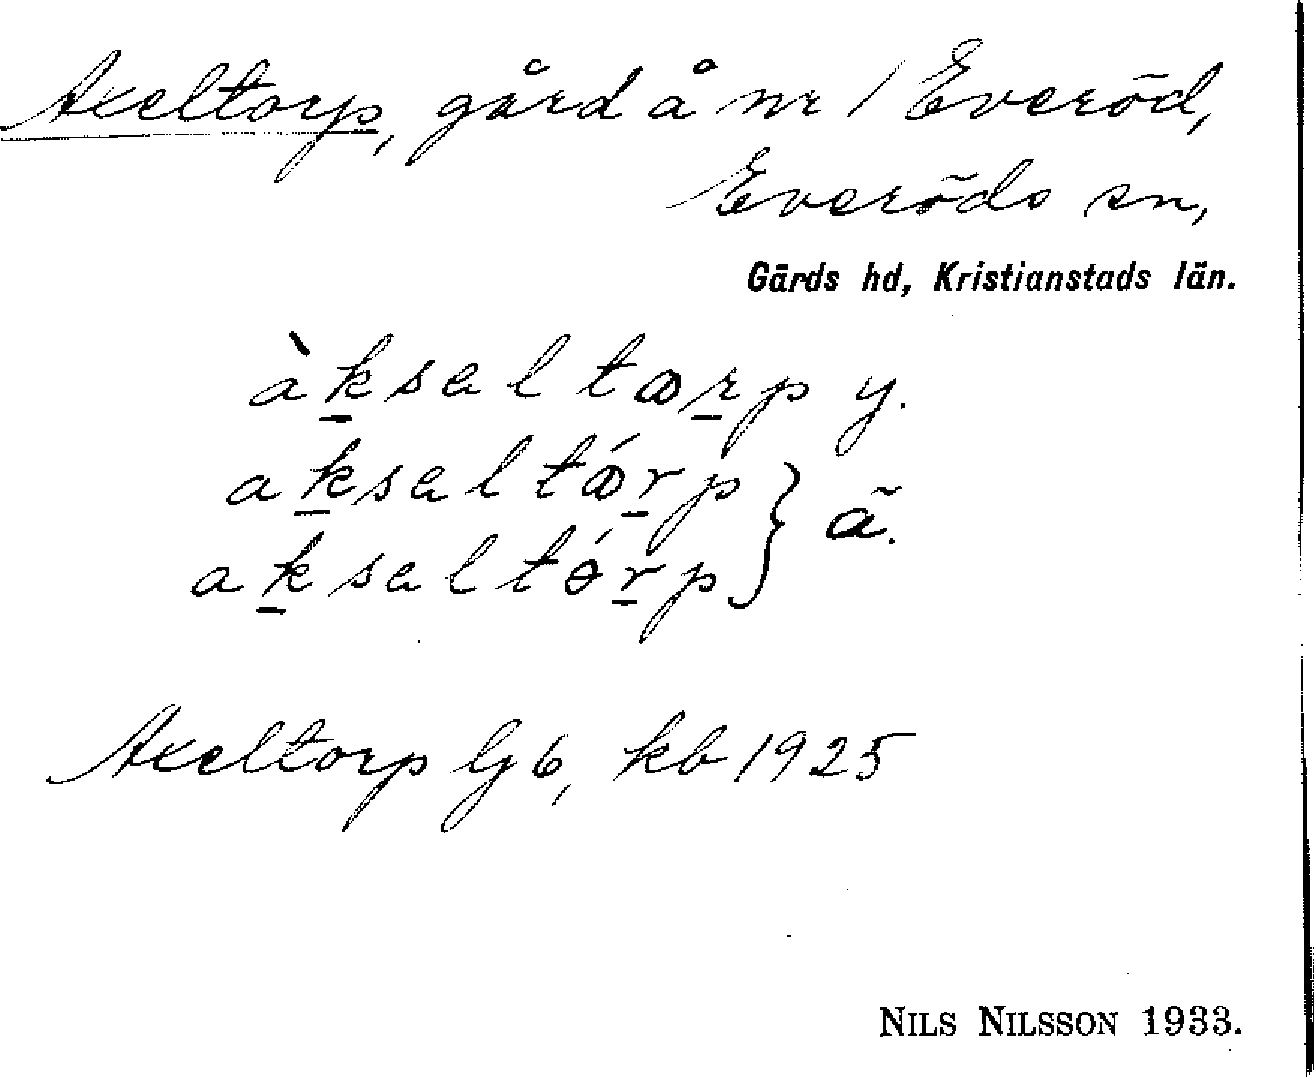 Axeltorp, gård å nr 1 Everöd,
Everöds sn,
Gärds hd, Kristianstads län.
àk̠səltɷr̠p y.
ak̠səltɷ́r̠p
ak̠səltór̠p } ä.
Axeltorp lg 6, kb 1925
NILS NILSSON 1933.